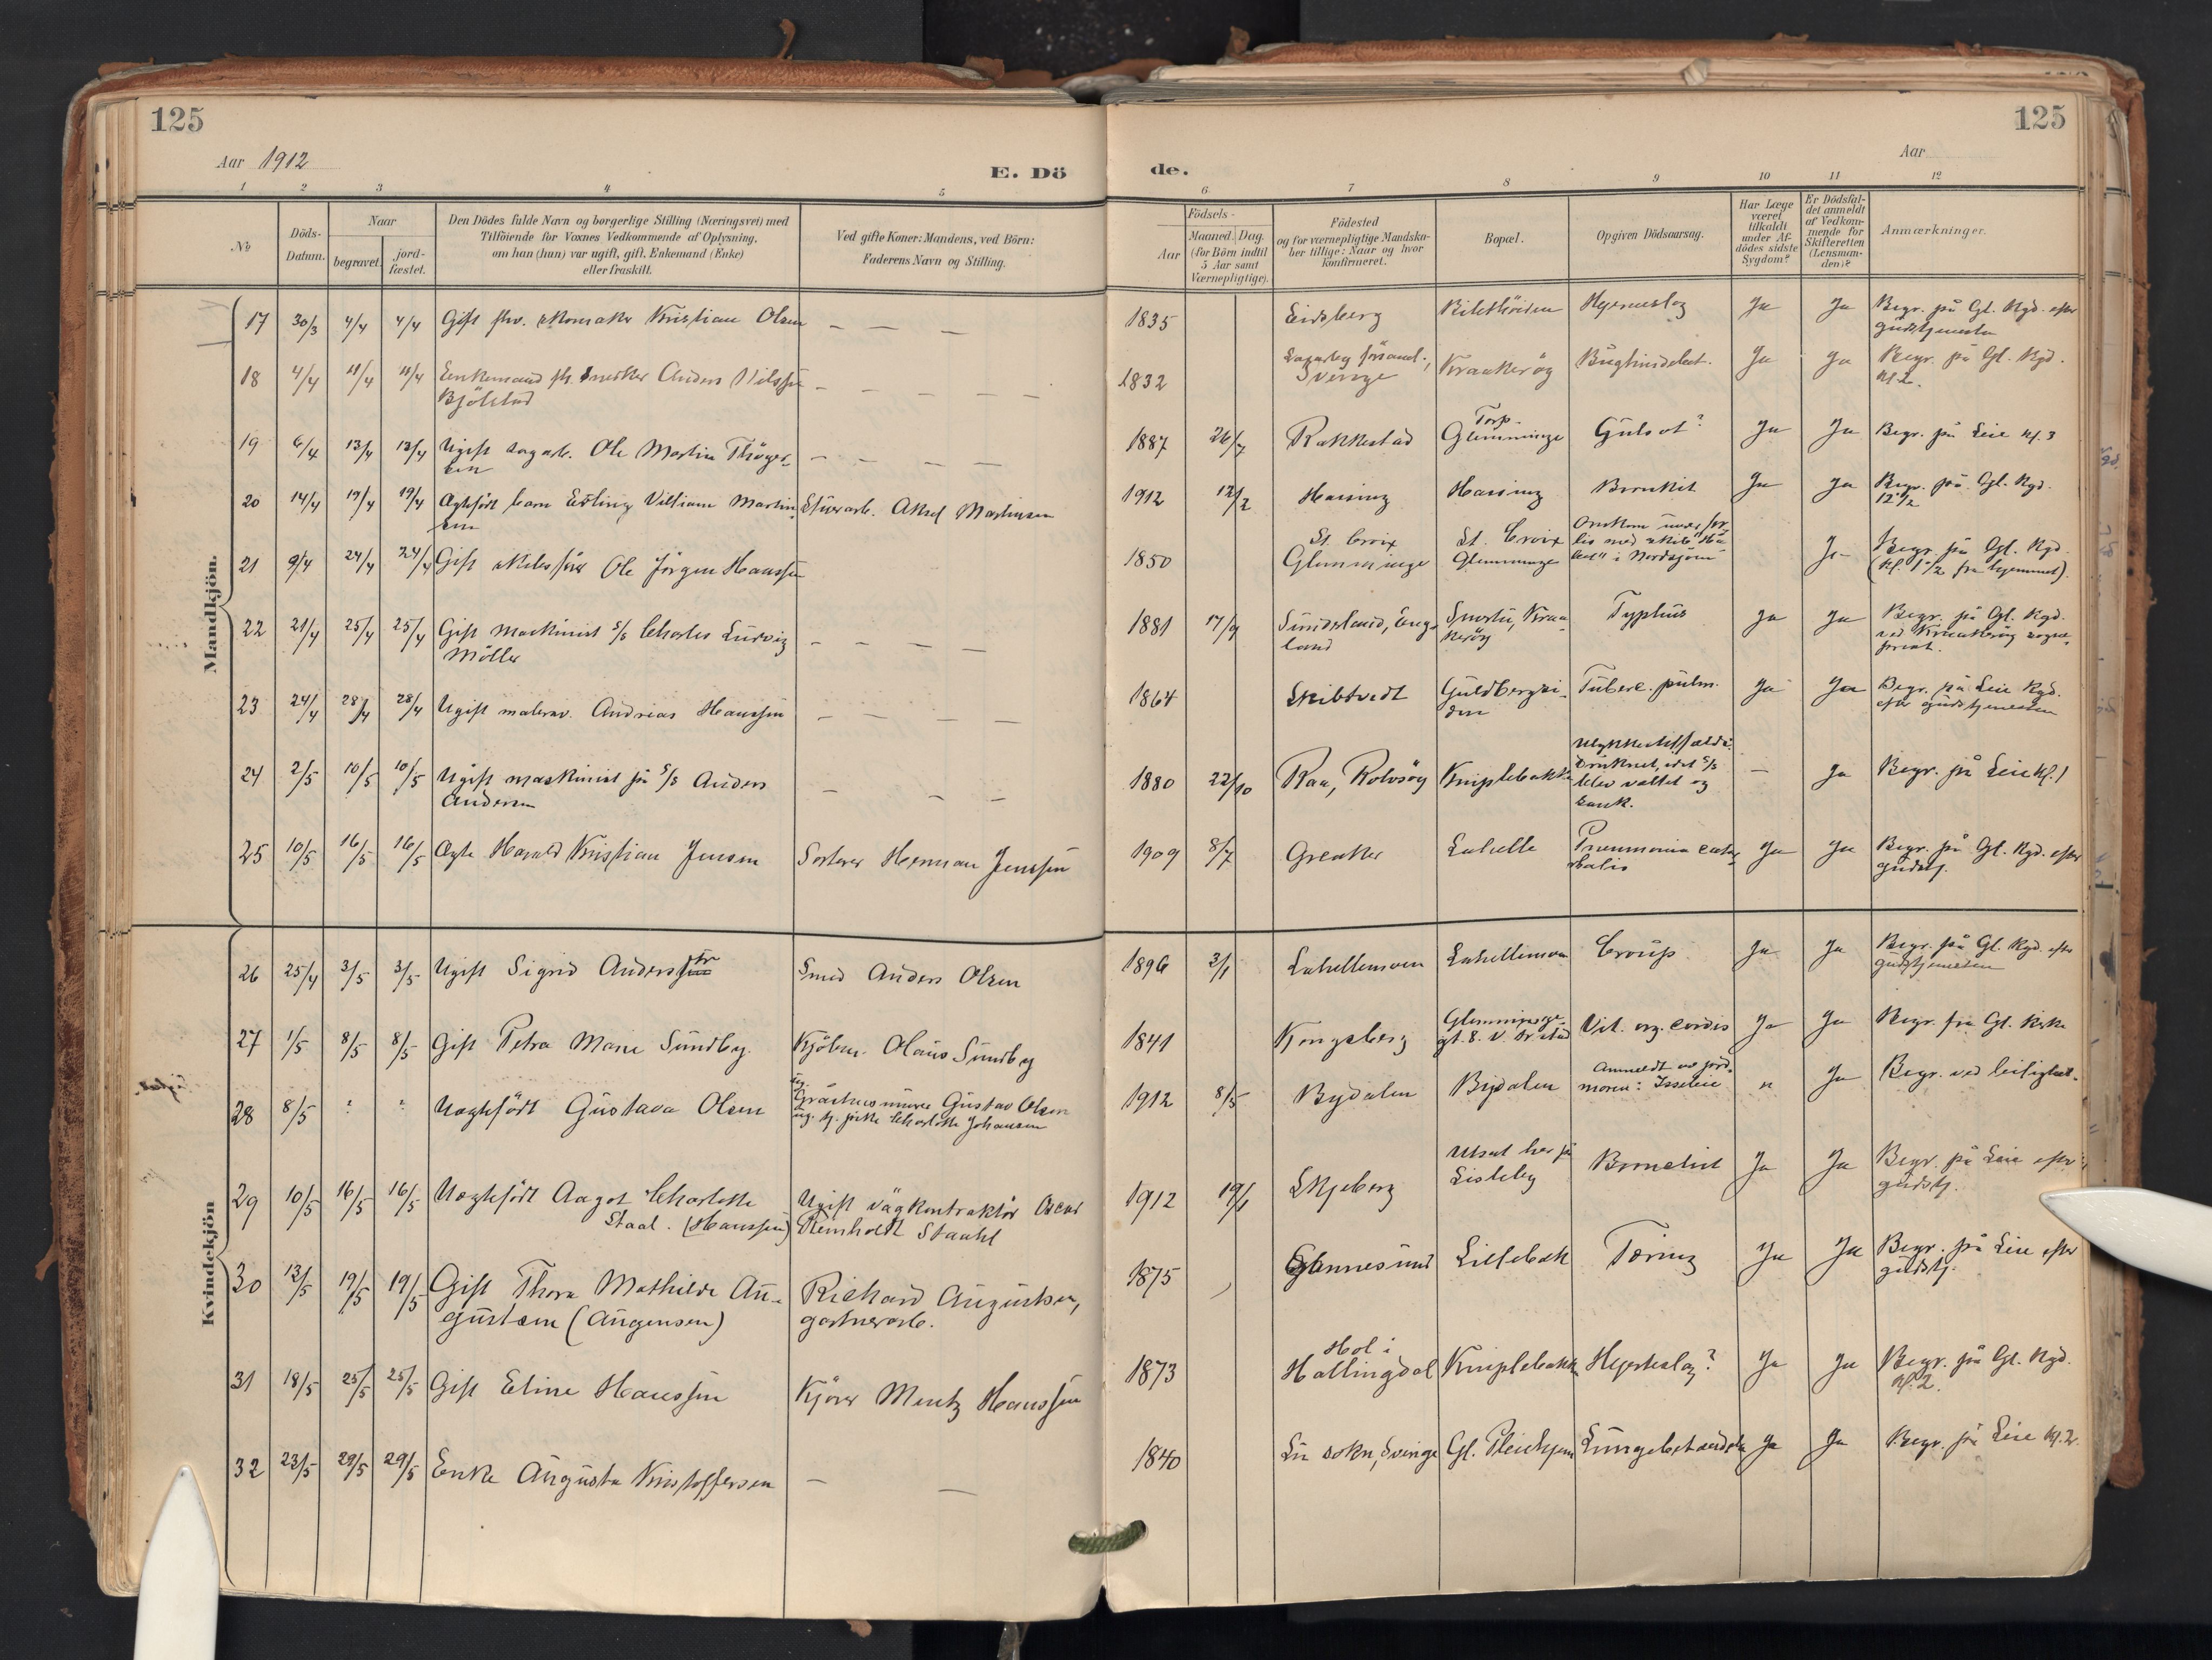 125
125
Aar 1912
Aar
E. Dö
de.
1 2 3 4 5 6 7 8 9 10 11 12
No
Döds-
Datum.
Naar
begravet.
jord-
fæstet.
Den Dödes fulde Navn og borgerlige Stilling (Næringsvei) med
Tilföiende for Voxnes Vedkommende af Oplysning,
om han (hun) var ugift, gift, Enkemand (Enke)
eller fraskilt.
Ved gifte Koner: Mandens, ved Börn:
Faderens Navn og Stilling.
Födsels-
Aar
Maaned. Dag.
(for Börn indtil
5 Aar samt
Værnepligtige).
Födested
og for værnepligtige Mandska-
ber tillige: Naar og hvor
konfirmeret.
Bopæl.
Opgiven Dödsaarsag.
Har Læge
været
tilkaldt
under Af-
dödes sidste
Sygdom?
Er Dödsfal-
det anmeldt
af Vedkom-
mende for
Skifteretten
(Lensman-
den)?
Anmærkninger.
Mandkjön.
17 30/3 4/4 4/4 Gift fhv. skomaker Kristian Olsen — — — 1835 Eidsberg Hjerneslag Ja Ja Begr. på Gl. Kgd. efter
gudstjenesten
18 4/4 11/4 11/4 Enkemand fh. snedker Anders Nilssen — — — — — 1832 Sverige Kraakerøy Ja Ja Begr. på Gl. Kgd.
Bjölstad kl. 2.
19 6/4 13/4 13/4 Ugift sagarb. Ole Martin Thöger- — — — — 1887 26/7 Rakkestad Torp-
Glemminge Gulsot? Ja Ja Begr. på Leie kl. 3
sen
20 14/4 19/4 19/4 Ægtefödt barn Erling Villiam Martin- Stuerarb. Aksel Martinsen 1912 12/2 Hassing Hassing Bronkit Ja Ja Begr. på Gl. Kgd.
sen 12 1/2
21 9/4 24/4 24/4 Gift skibsförer Ole Jörgen Hanssen 1850 St. Croix
Glemminge St. Croix
Glemminge Omkom under for-
lis med skib
i Nordsjöen Ja Begr. på Gl. Kgd.
(kl. 1 1/2 fra hjemmet).
22 21/4 25/4 25/4 Gift maskinist s/s Charles Ludvig — — — — 1881 17/9 Sunderland, Eng-
land Kraa-
keröy Typhus Ja Ja Begr. på Gl. Kgd.
Möller ved Kraakeröy sogne-
prest.
23 24/4 28/4 28/4 Ugift malersv. Andreas Hanssen — — — — 1864 Skibtvedt Guldbergsi-
den Tuberc. pulm. Ja Ja Begr. på Leie Kgd.
efter gudstjenesten
24 2/5 10/5 10/5 Ugift maskinist på s/s Anders — — — 1880 22/10 Raa, Rolvsöy Kniplebakke Ulykkestilfælde.
Druknet, idet s/s
blev væltet og
sank. — Ja Begr. på Leie kl. 1
Andersen
25 10/5 16/5 16/5 Ægte Harald Kristian Jensen Sorterer Herman Jenssen 1909 8/7 Greaker Lahelle Pneumonia catar-
rhalis Ja Ja Begr. på Gl. Kgd. efter
gudstj.
Kvindekjön
26 25/4 3/5 3/5 Ugift Sigrid Anderssen Smed Anders Olsen 1896 3/1 Lahellemoen Lahellemoen Croup Ja Ja Begr. på Gl. Kgd. efter
gudstjenesten
27 1/5 8/5 8/5 Gift Petra Marie Sundby Kjöbm. Olaus Sundby 1841 Kongsberg Glemminge-
gt. 8. Vit. org. cordis Ja Ja Begr. fra Gl. Kirke
28 8/5 ? ? Uægtefödt Gustava Olsen Ug. Gråstensmurer Gustav Olsen
ug. tj. pike Charlotte Johansen 1912 8/5 Bydalen Bydalen Anmeldt av jord-
moren: Isseleie n Ja Begr. ved leilighet.
29 10/5 16/5 16/5 Uægtefödt Aagot Charlotte Ugift vägkontraktör Oscar 1912 19/1 Skjeberg Utsat her på
Lisleby Bronchit Ja Ja Begr. på Leie efter
Staal. (Hanssen) Reinholdt Staahl gudstj.
30 12/5 19/5 19/5 Gift Thora Mathilde Au- Richard Augustsen, 1875 Lislebak Tæring Ja Ja Begr. på Leie efter
gustsen (Augensen) gartnerarb. gudstj.
31 18/5 25/5 25/5 Gift Eline Hanssen Kjörer Mentz Hanssen 1873 Hol i
Hallingdal Kniplebakk Hjerteslag? Ja Ja Begr. på Gl. Kgd.
kl. 2.
32 23/5 29/5 29/5 Enke Augusta Kristoffersen — — 1840 Gl. Pleiehjem Lungebetændelse Ja Ja Begr. på Leie kl. 2.